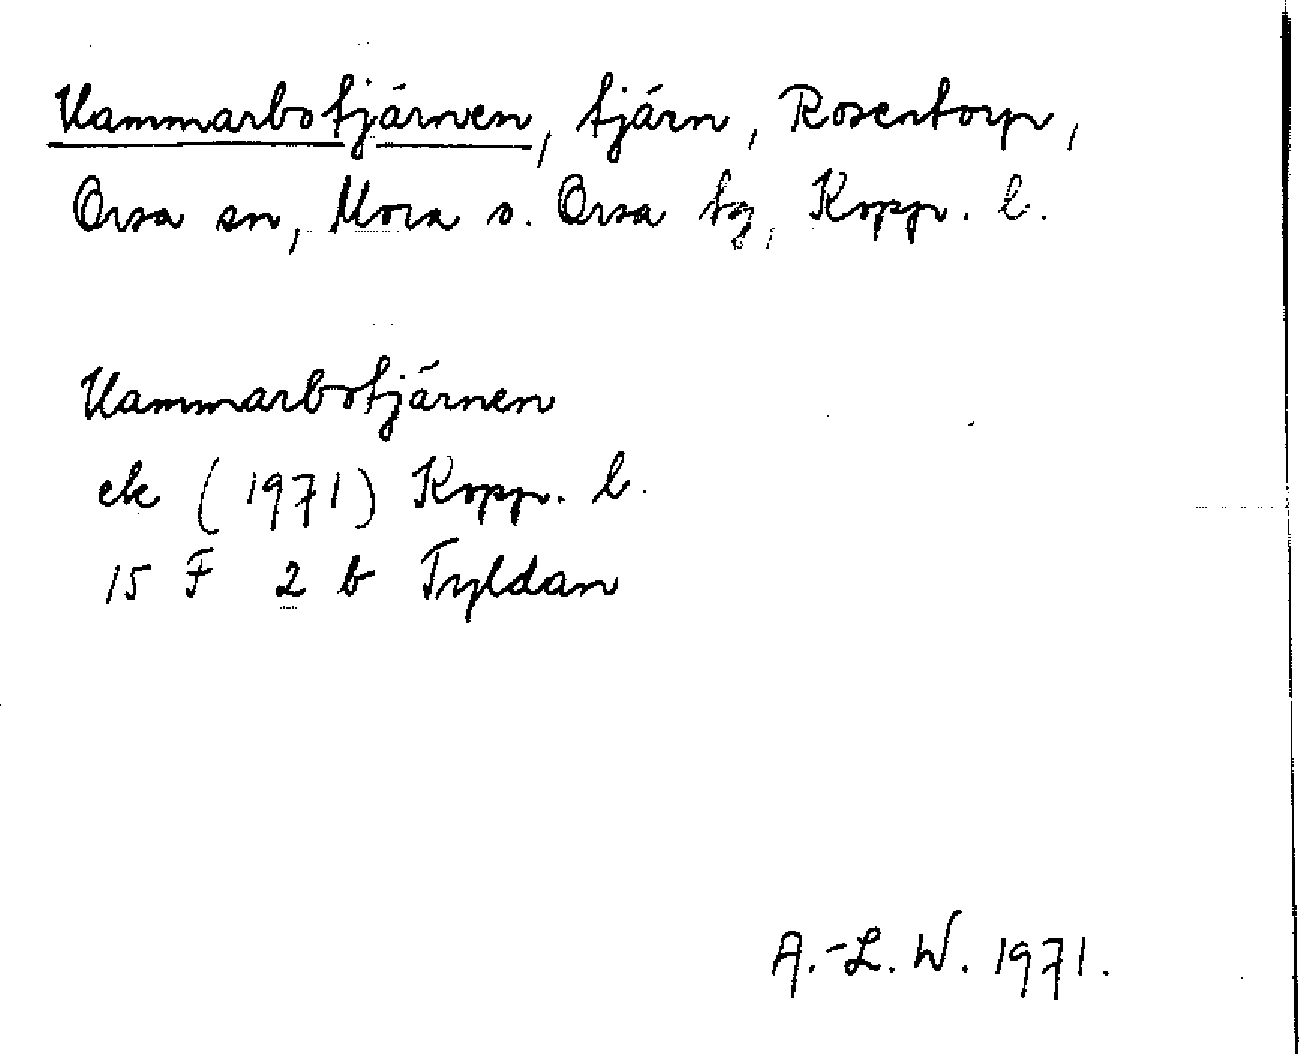 Nammarbotjärnen, tjärn, Rosentorp,
Orsa sn, Mora o. Orsa tg, Kopp. l.
Nammarbotjärnen
ek (1971) Kopp. l.
15 F 2 b Fyldan
A.-L. W. 1971.